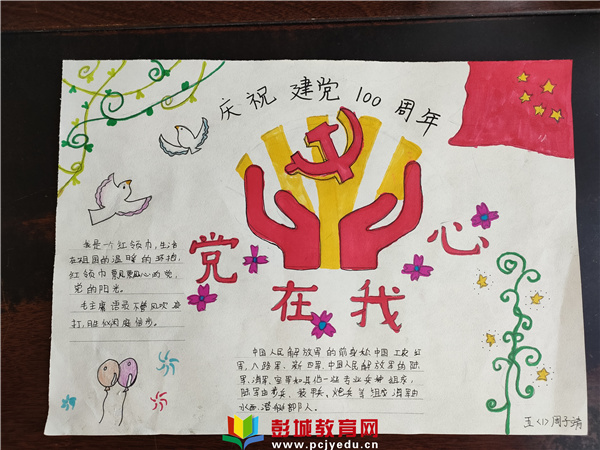 庆祝 建党 100 周年
党在我心
我是一个红领巾,生活
在祖国的温暖的环抱,
红领巾
心的党,
党的阳光。
毛主席语录 不管风吹浪
打,胜似闲庭信步。
中国人民解放军的前身是中国工农红
军,八路军、新四军,中国人民解放军的陆
军、海军、空军和其他一些专业兵种组成,
陆军由步兵、装甲兵、炮兵等组成 海军由
水面、潜艇部队人。
五〈1〉周子靖
彭城教育网
www.pcjyedu.cn